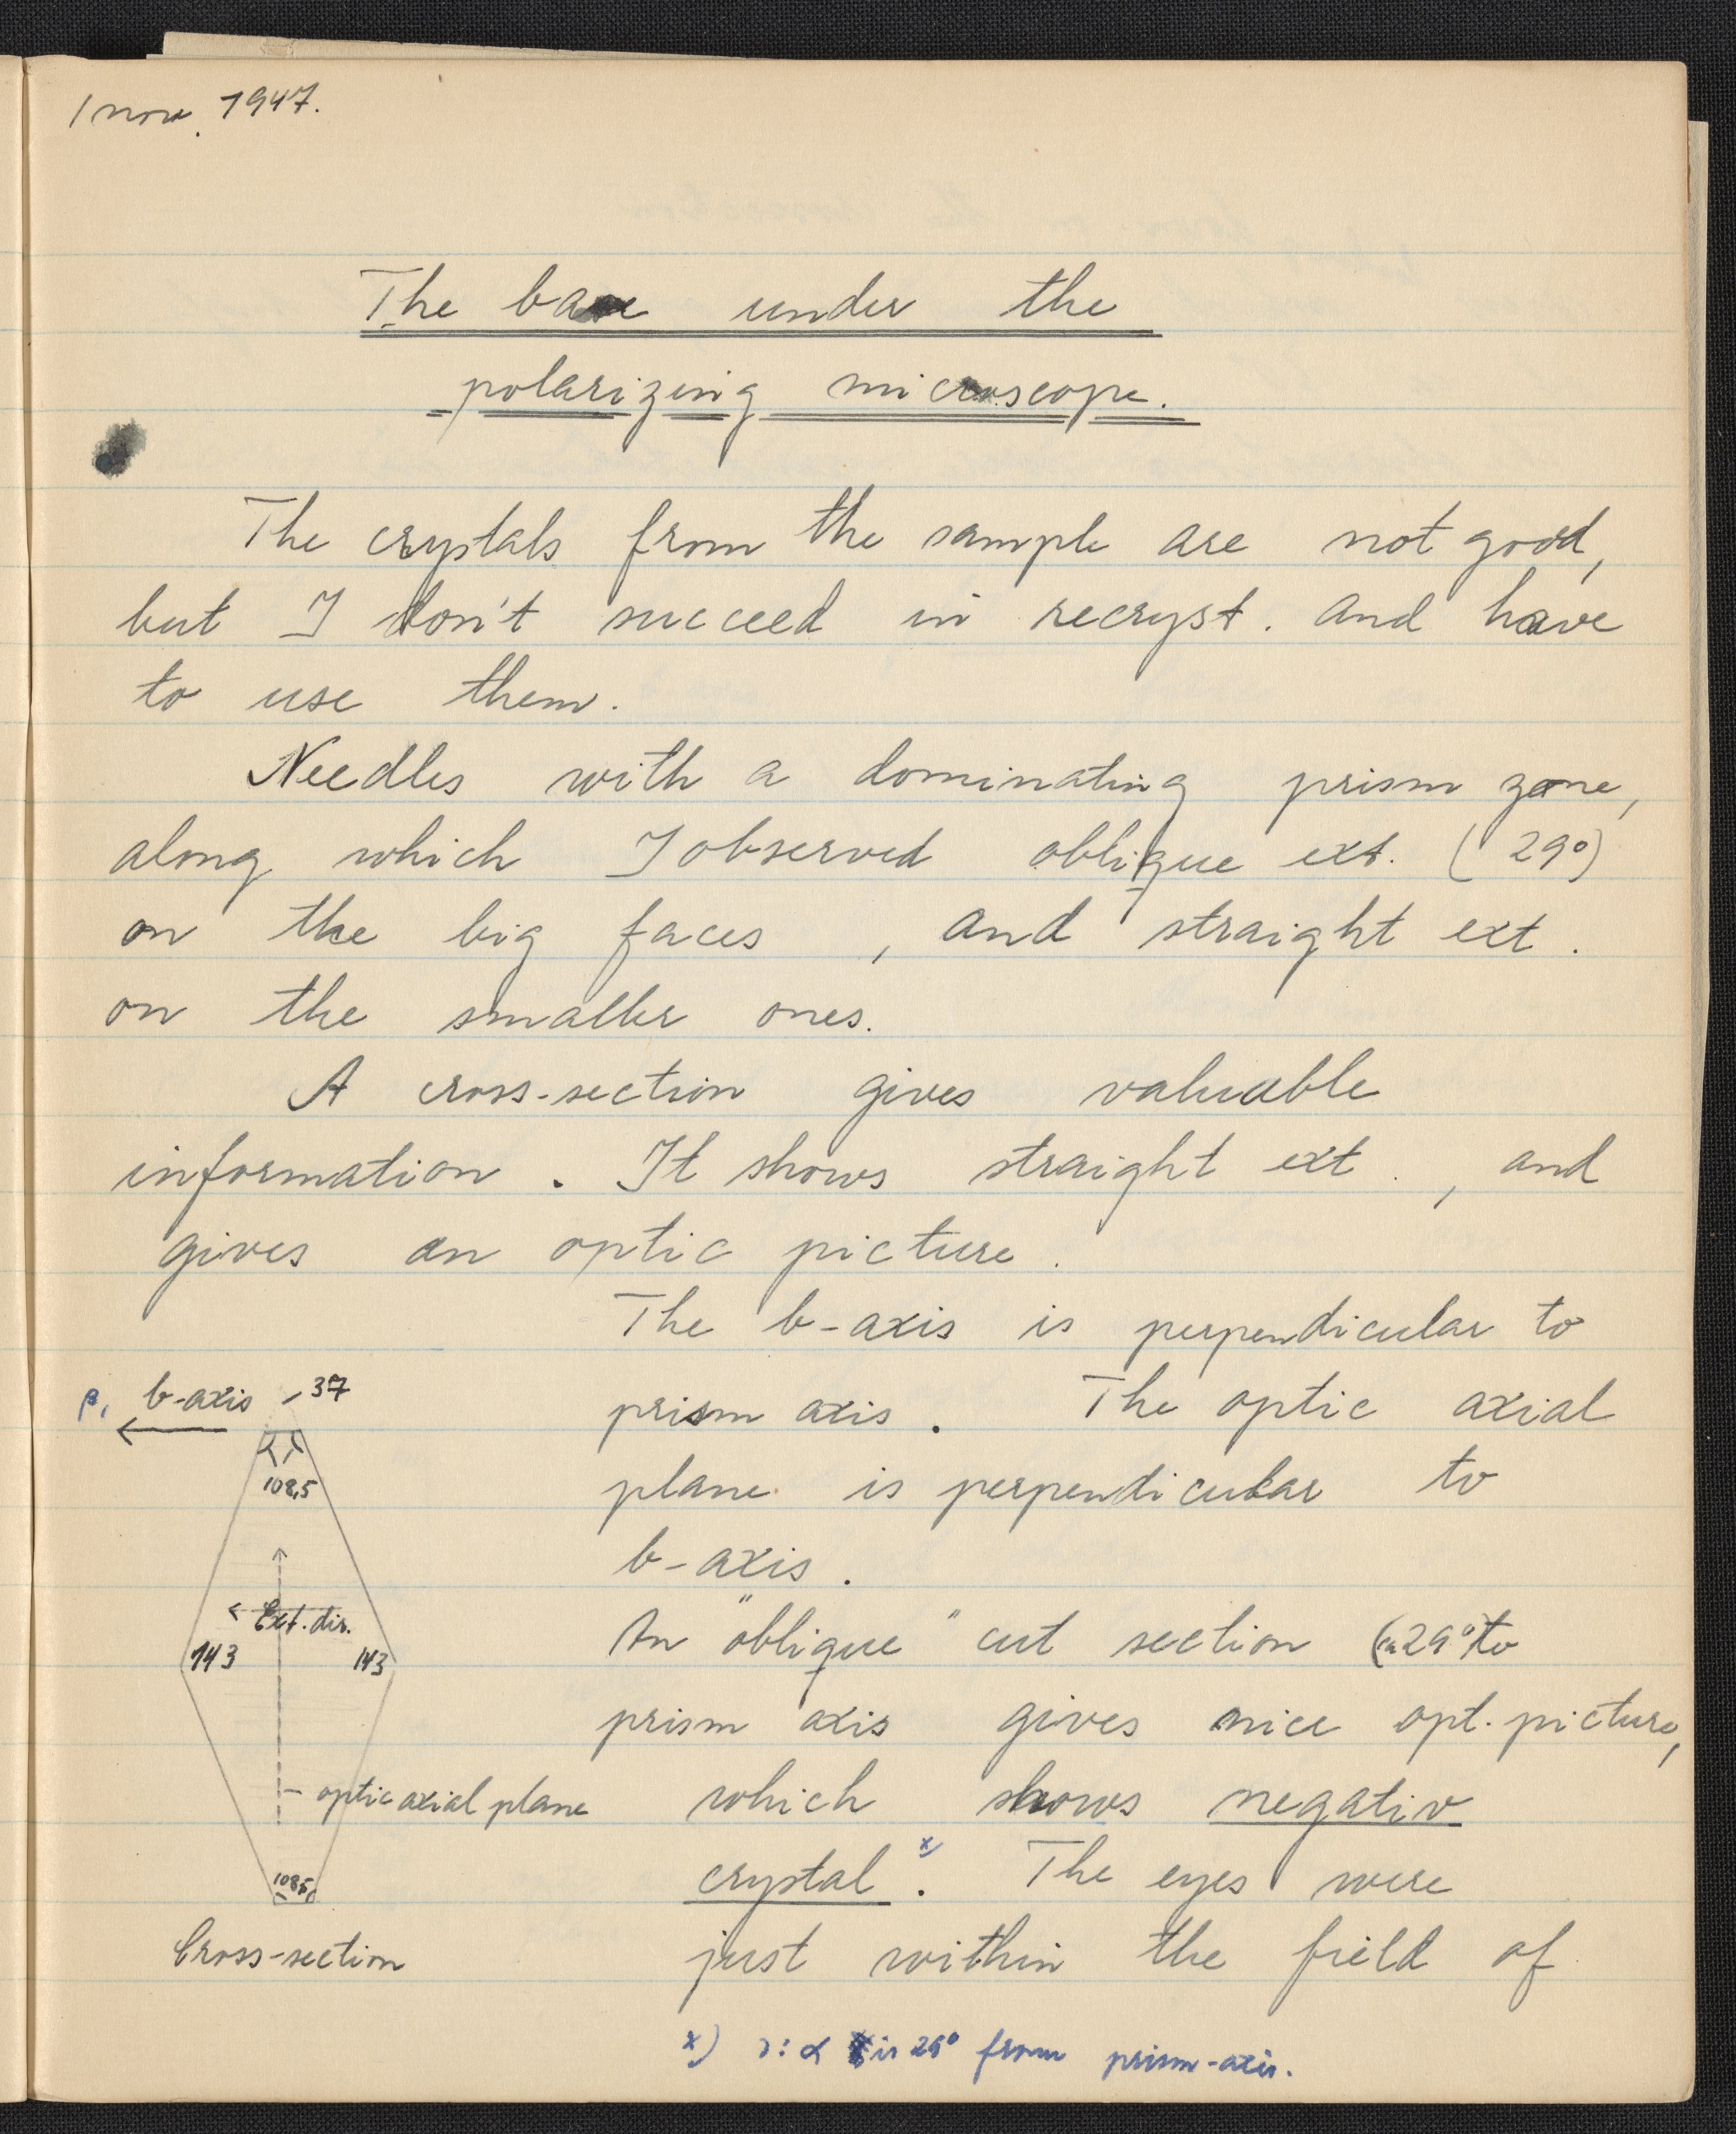 1 nov. 1947.
The base under the
polarizing microscope.
The crystals from the sample are not good,
but I don't succeed in recryst. and have
to use them.
Needles with a dominating prism zone,
along which I observed oblique ext. (29°)
on the big faces, and straight ext.
on the smaller ones.
A cross-section gives valuable
information. It shows straight ext., and
gives an optic picture.
The b-axis is perpendicular to
prism axis. The optic axial
plane is perpendicular to
b-axis.
An "oblique" cut section (ca 29° to
prism axis gives nice opt. picture,
which shows negativ
crystal x). The eyes were
just within the field of
β, b-axis 37
108,5
Ext. dir.
143 143
optic axial plane
108,5
Cross-section
x) ɔ: α is 29° from prism-axis.